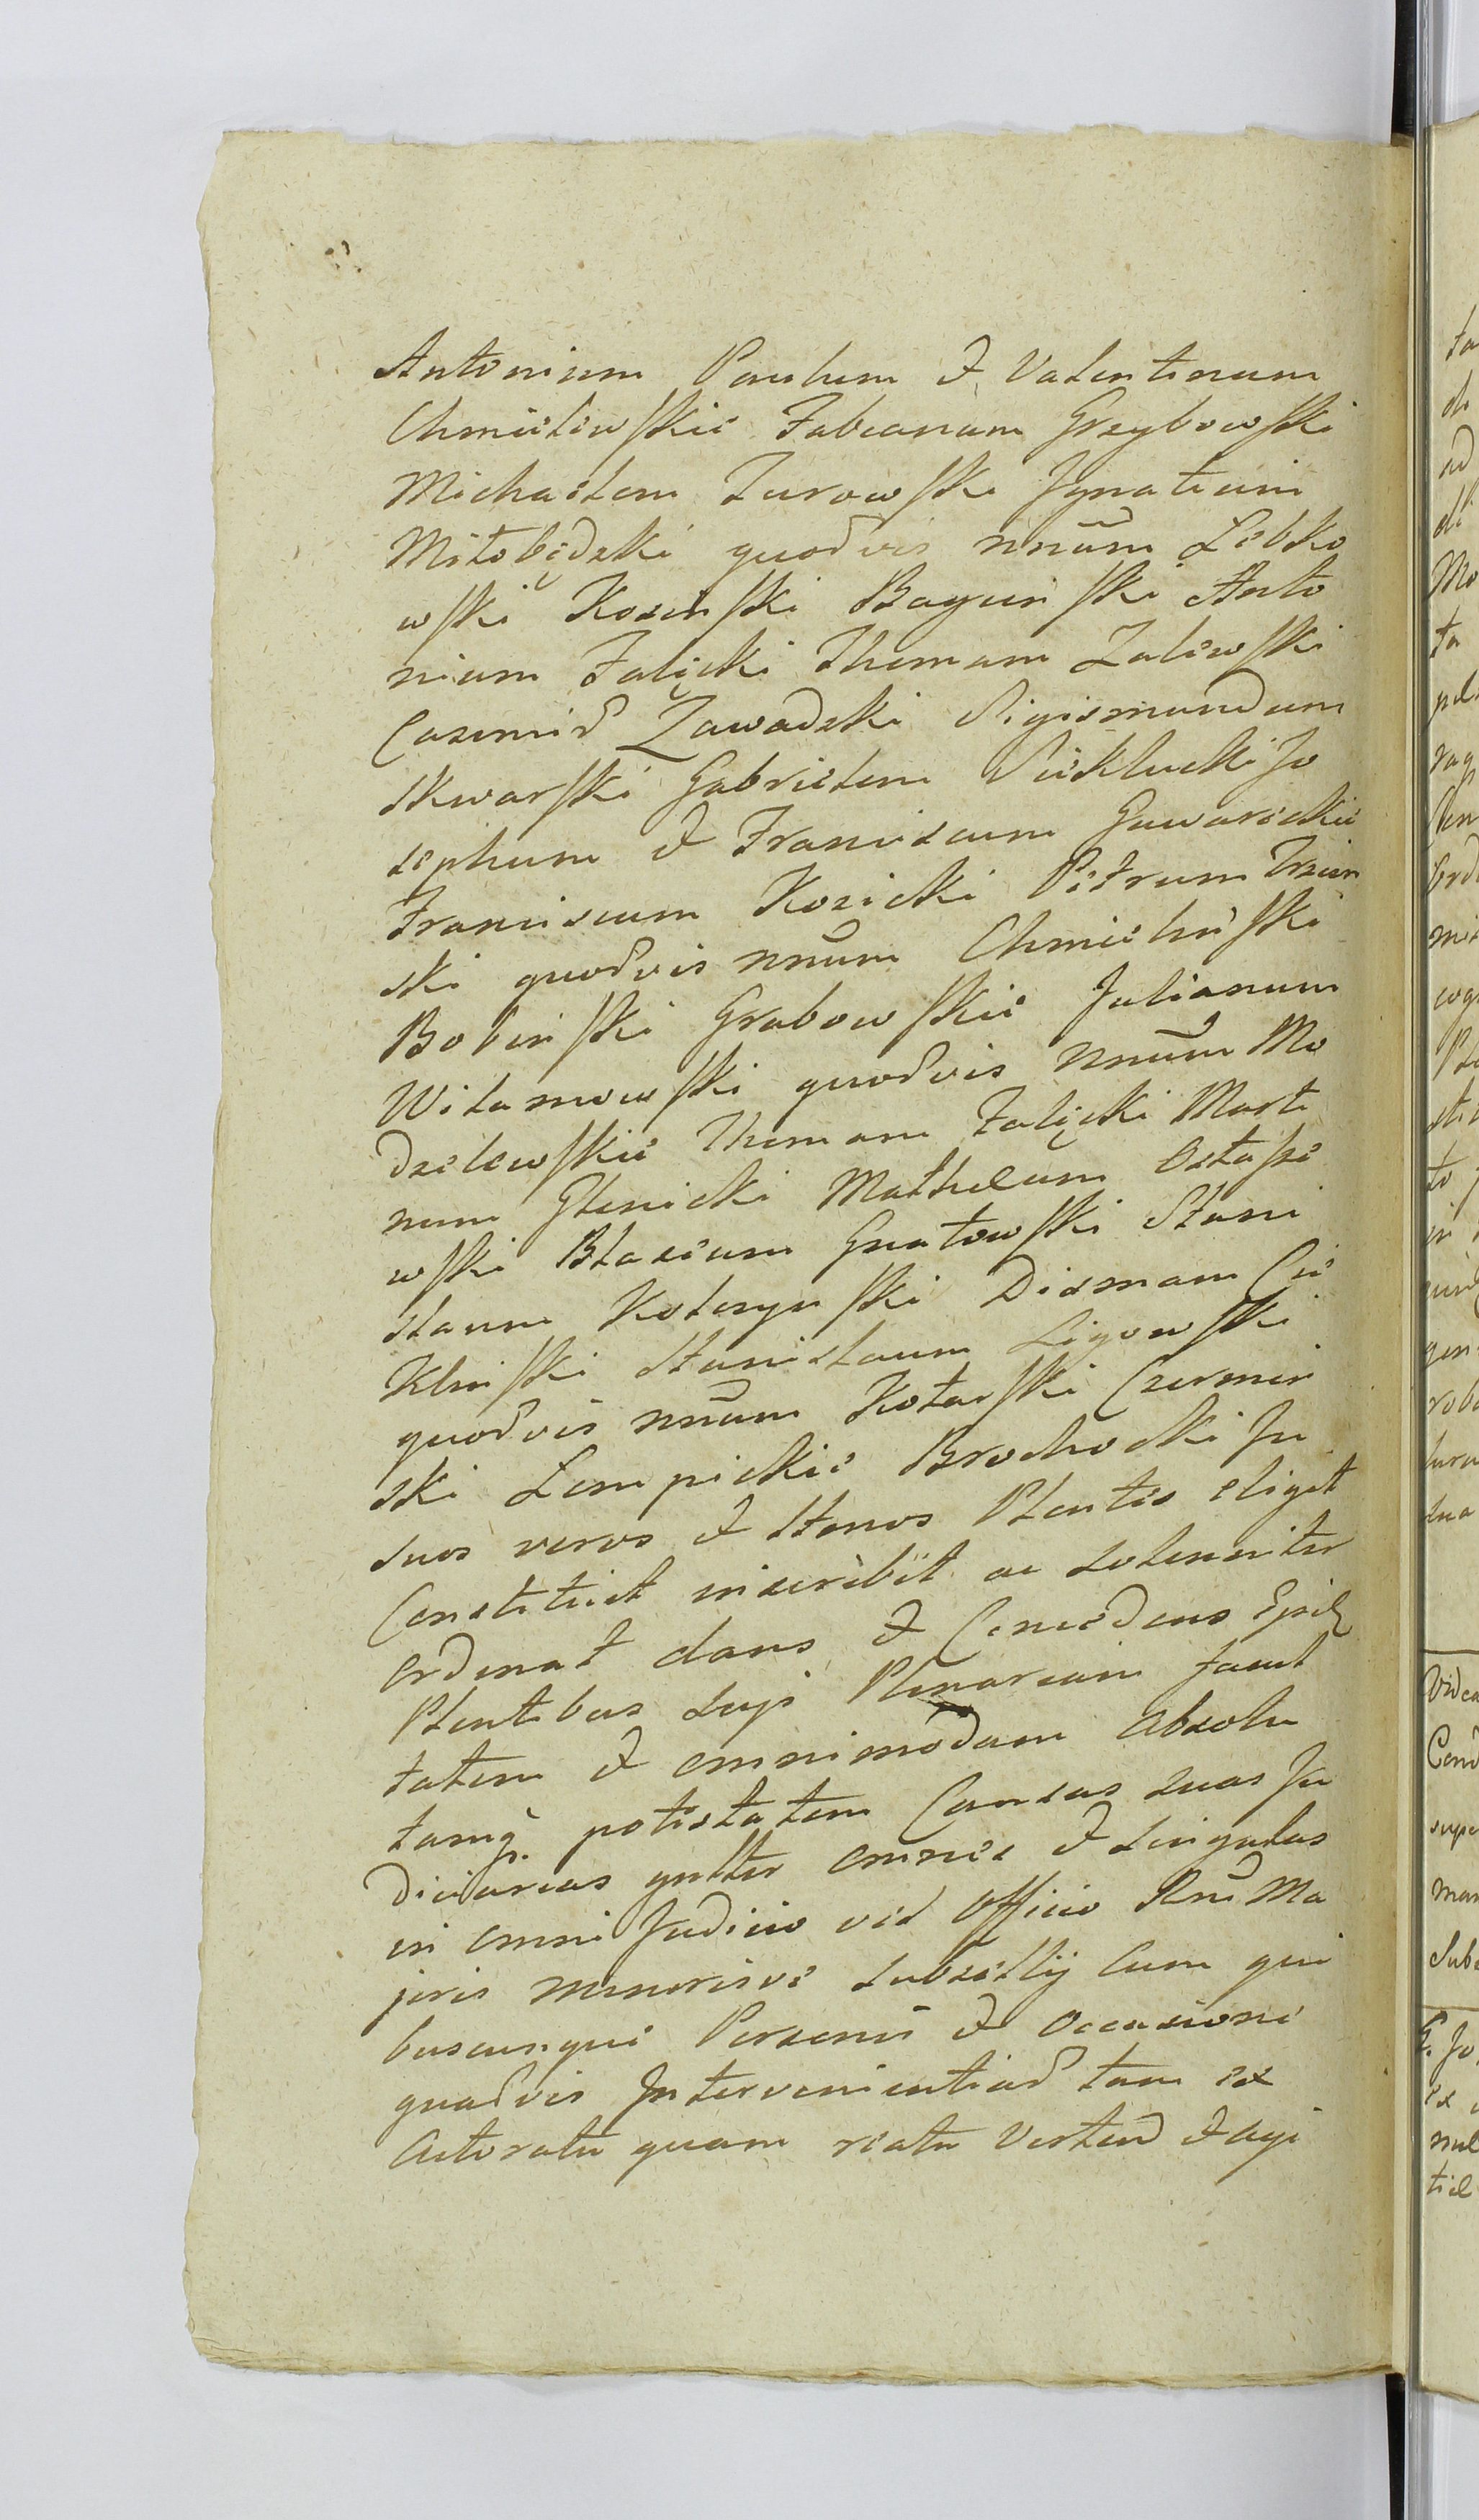 Antonium Paulum & Valentinum
Chmielewskie Fabianum Grzybowski
Michaelem Zurowski Ignatium
Miłobędzki quodvis nnūm Lebko
wski Kosinski Baginski Anto
nium Falęcki Thomam Zalewski
Casimir Zawadzki Sigismundum
Skwarski Gabrielem Pieklucki Jo
sephum & Franciscum Gawareckie
Franciscum Kozicki Petrum Trzciń
ski quodvis nnūm Chmieliński
Bobinski Grabowskie Julianum
Wilamowski quodvis nnūm Mo
dzelewskie Thomam Falęcki Marti
num Glinicki Matheum Ostasze
wski Blasium Gnatowski Stani
slaum Kolczynski Dismam Cie
Klinski Stanislaum Ligowski
quodvis nnūm Kotarski Czermin
ski Lempickie Brochocki In
suos veros & Ltmos Plentes eligit
Constituit inscribit ac solenniter
ordinat dans & Concedens Ejsdē
Plentibus suis Plenariam facul
tatem & omnimodam absolu
tamq. potestatem Causas suas Ju
diciarias gnltter omnes & singulas
in omni Judicio vel Officio Rni Ma
joris minorisve subsellij Cum qui
buscunque Personis & occasione
quavis Intervenientiad tam ex
Actoratu quam reatu Vertend & agi